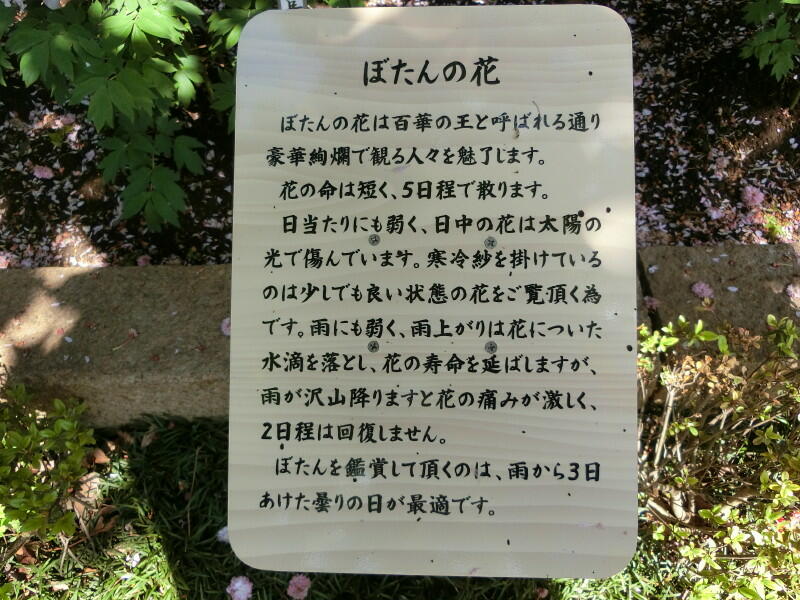 ぼたんの花
ぼたんの花は百華の王と呼ばれる通り
豪華絢爛で観る人々を魅了します。
花の命は短く、5日程で散ります。
日当たりにも弱く、日中の花は太陽の
光で傷んでいます。寒冷紗を掛けている
のは少しでも良い状態の花をご覧頂く為
です。雨にも弱く、雨上がりは花についた
水滴を落とし、花の寿命を延ばしますが、
雨が沢山降りますと花の痛みが激しく、
2日程は回復しません。
ぼたんを鑑賞して頂くのは、雨から3日
あけた曇りの日が最適です。